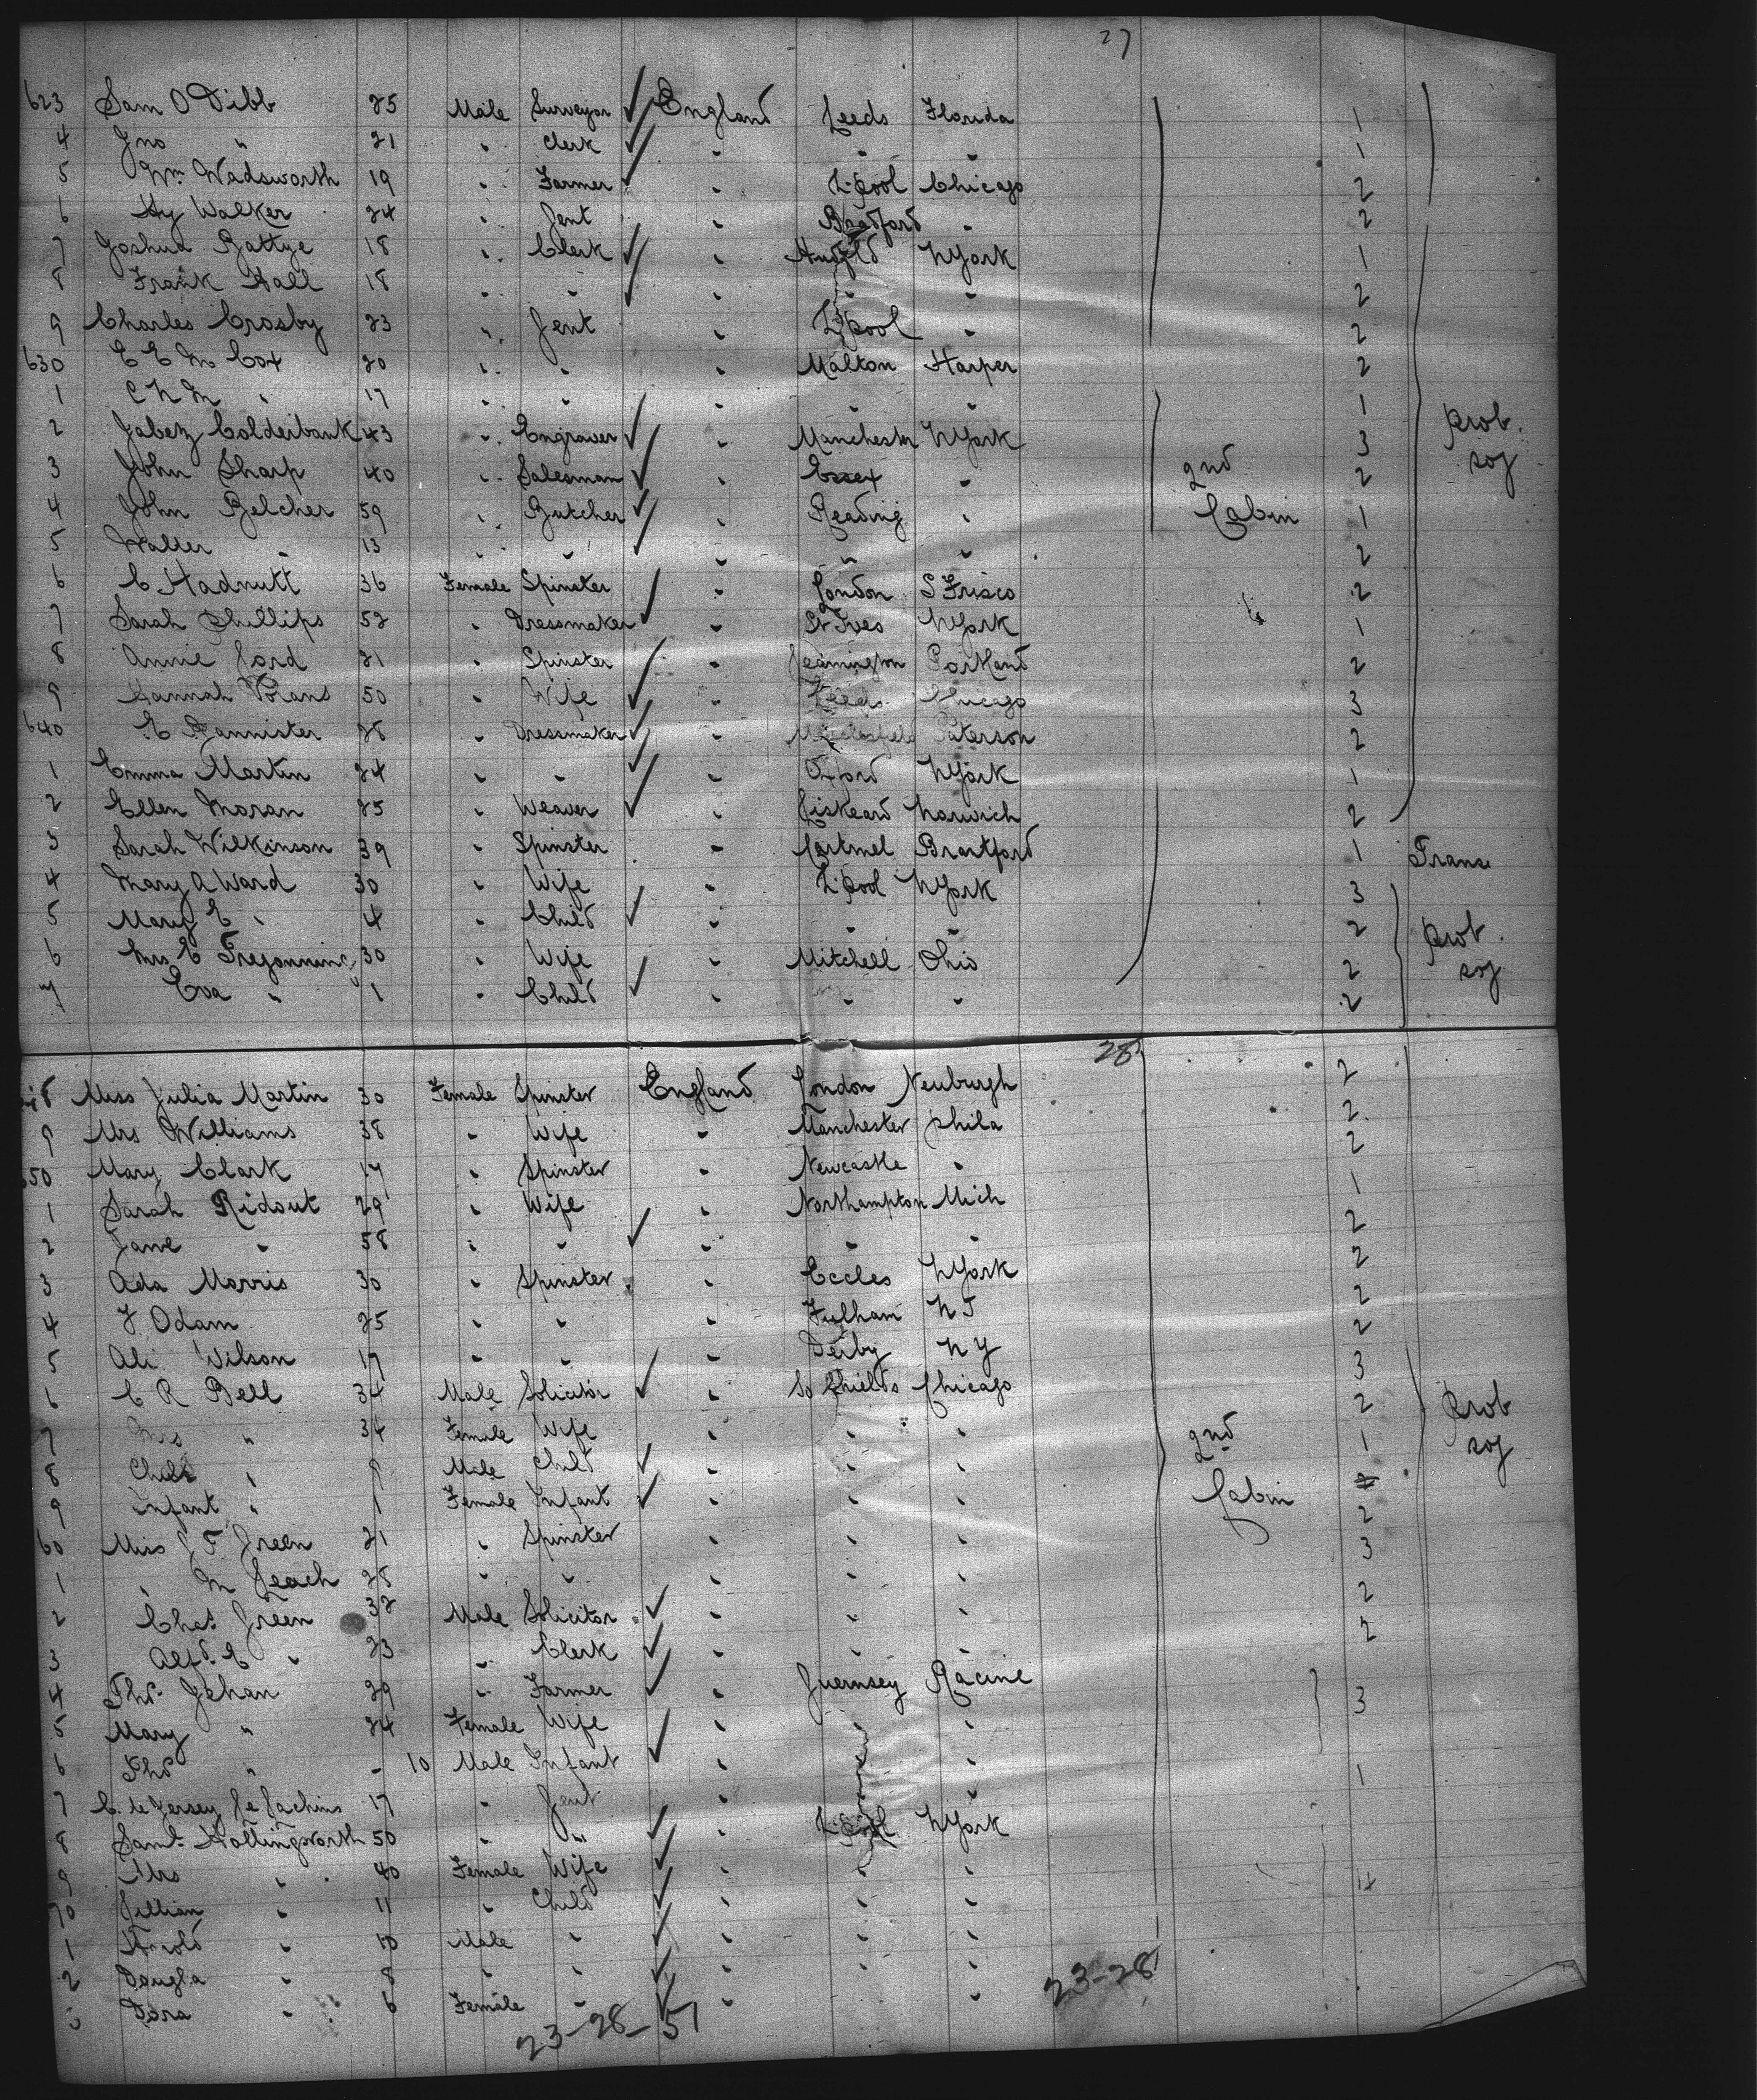 27
623 Sam O Dibb 25 Male Surveyor ✓ England Leeds Florida 1
4 Jno " 21 " Clerk ✓ " " " 1
5 Wm Wadsworth 19 " Farmer ✓ " L'pool Chicago 2
6 Hy Walker 24 " Gent " Bradford " 2
7 Joshua Battye 18 " Clerk ✓ " Hudfld N York 1
8 Frank Hall 18 " " ✓ " " " 2
9 Charles Crosby 23 " Gent " L'pool " 2
630 E E M Cox 20 " " " Malton Harper 2
1 C N M " 17 " " " " " 1
2 Jabez Colderbank 43 " Engraver ✓ " Manchester N York 3 prob. soj
3 John Sharp 40 " Salesman ✓ " Essex " 2nd 2
4 John Belcher 59 " Butcher ✓ " Reading " Cabin 1
5 Walter " 13 " " ✓ " " " 2
6 C Hadnutt 36 Female Spinster " London S Frisco 2
7 Sarah Phillips 52 " Dressmaker ✓ " St Ives N York " 1
8 Annie Ford 21 " Spinster ✓ " Leamington Portland 2
9 Hannah 50 " Wife ✓ " Leeds Chicago 3
640 E Bannister 28 " Dressmaker ✓ " Macclesfield Paterson 2
1 Emma Martin 24 " " ✓ " Oxford N York 1
2 Ellen Moran 25 " Weaver ✓ " Liskeard Norwich 2
3 Sarah Wilkinson 39 " Spinster " Cartmel Brantford 1 Trans
4 Mary A Ward 30 " Wife " L'pool N York 3
5 Mary E " 4 " Child ✓ " " " 2 prob. soj
6 Mrs E Tregonning 30 " Wife " Mitchell Ohio 2
7 Eva " 1 " Child ✓ " " " 2
28
648 Miss Julia Martin 30 Female Spinster England London Newburgh 2
9 Mrs Williams 38 " Wife " Manchester Phila 2
650 Mary Clark 17 " Spinster " Newcastle " 2
1 Sarah Ridout 29 " Wife " Northampton Mich 1
2 Jane " 58 " " ✓ " " " 2
3 Ada Morris 30 " Spinster " Eccles N York 2
4 J Odam 25 " " " Fulham N J 2
5 Ali Wilson 17 " " " Derby N Y 2
6 C R Bell 34 Male Solicitor ✓ " So Shields Chicago 3 prob soj
7 Mrs " 34 Female Wife " " " 2nd 2
8 Child " 9 Male Child ✓ " " " 1
9 Infant " 1 Female Infant ✓ " " " Cabin 2
60 Miss J F Green 21 " Spinster " " " 2
1 " M Leach 28 " " " " " 3
2 Chas. Green 32 Male Solicitor ✓ " " " 2
3 Alfd. E " 23 " Clerk ✓ " " " 2
4 Thos. Jehan 29 " Farmer ✓ " Guernsey Racine
5 Mary " 24 Female Wife " " " 3
6 Thos " - 10 Male Infant ✓ " " "
7 C. de Jersey 17 " Gent " " " 1
8 Saml. Hollingsworth 50 " " ✓ " L'pool N York
9 Mrs " 40 Female Wife ✓ " " "
70 Lillian " 11 " Child ✓ " " " 4
1 Harold " 10 Male " ✓ " " "
2 Dougla " 8 " " ✓ " " "
3 Dora " 6 Female " ✓ " "
23-28
23-28-57